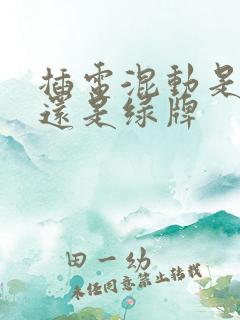 插電混動是
還是綠牌
田一幼
未经同意禁止转载